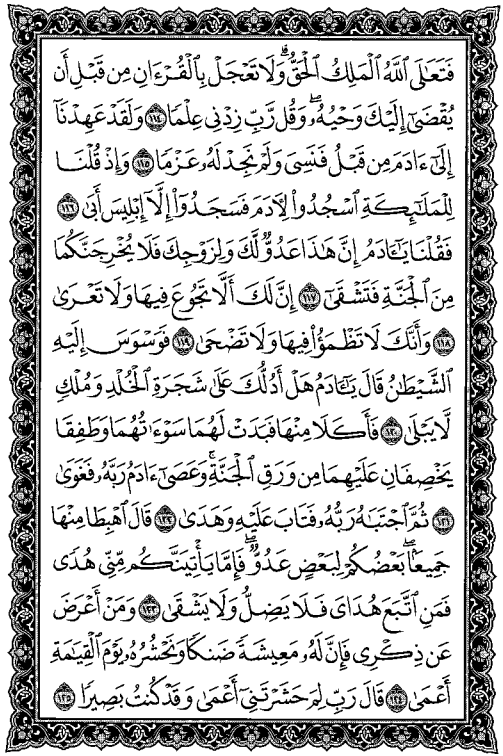 فَتَعَٰلَى ٱللَّهُ ٱلْمَلِكُ ٱلْحَقُّ ۗ وَلَا تَعْجَلْ بِٱلْقُرْءَانِ مِن قَبْلِ أَن
يُقْضَىٰٓ إِلَيْكَ وَحْيُهُۥ ۖ وَقُل رَّبِّ زِدْنِى عِلْمًا ١١٤ وَلَقَدْ عَهِدْنَآ
إِلَىٰٓ ءَادَمَ مِن قَبْلُ فَنَسِىَ وَلَمْ نَجِدْ لَهُۥ عَزْمًا ١١٥ وَإِذْ قُلْنَا
لِلْمَلَٰٓئِكَةِ ٱسْجُدُوا۟ لِـَٔادَمَ فَسَجَدُوٓا۟ إِلَّآ إِبْلِيسَ أَبَىٰ ١١٦
فَقُلْنَا يَٰٓـَٔادَمُ إِنَّ هَٰذَا عَدُوٌّ لَّكَ وَلِزَوْجِكَ فَلَا يُخْرِجَنَّكُمَا
مِنَ ٱلْجَنَّةِ فَتَشْقَىٰٓ ١١٧ إِنَّ لَكَ أَلَّا تَجُوعَ فِيهَا وَلَا تَعْرَىٰ
١١٨ وَأَنَّكَ لَا تَظْمَؤُا۟ فِيهَا وَلَا تَضْحَىٰ ١١٩ فَوَسْوَسَ إِلَيْهِ
ٱلشَّيْطَٰنُ قَالَ يَٰٓـَٔادَمُ هَلْ أَدُلُّكَ عَلَىٰ شَجَرَةِ ٱلْخُلْدِ وَمُلْكٍ
لَّا يَبْلَىٰ ١٢٠ فَأَكَلَا مِنْهَا فَبَدَتْ لَهُمَا سَوْءَٰتُهُمَا وَطَفِقَا
يَخْصِفَانِ عَلَيْهِمَا مِن وَرَقِ ٱلْجَنَّةِ ۚ وَعَصَىٰٓ ءَادَمُ رَبَّهُۥ فَغَوَىٰ
١٢١ ثُمَّ ٱجْتَبَٰهُ رَبُّهُۥ فَتَابَ عَلَيْهِ وَهَدَىٰ ١٢٢ قَالَ ٱهْبِطَا مِنْهَا
جَمِيعًۢا ۖ بَعْضُكُمْ لِبَعْضٍ عَدُوٌّ ۖ فَإِمَّا يَأْتِيَنَّكُم مِّنِّى هُدًى
فَمَنِ ٱتَّبَعَ هُدَاىَ فَلَا يَضِلُّ وَلَا يَشْقَىٰ ١٢٣ وَمَنْ أَعْرَضَ
عَن ذِكْرِى فَإِنَّ لَهُۥ مَعِيشَةً ضَنكًا وَنَحْشُرُهُۥ يَوْمَ ٱلْقِيَٰمَةِ
أَعْمَىٰ ١٢٤ قَالَ رَبِّ لِمَ حَشَرْتَنِىٓ أَعْمَىٰ وَقَدْ كُنتُ بَصِيرًا ١٢٥